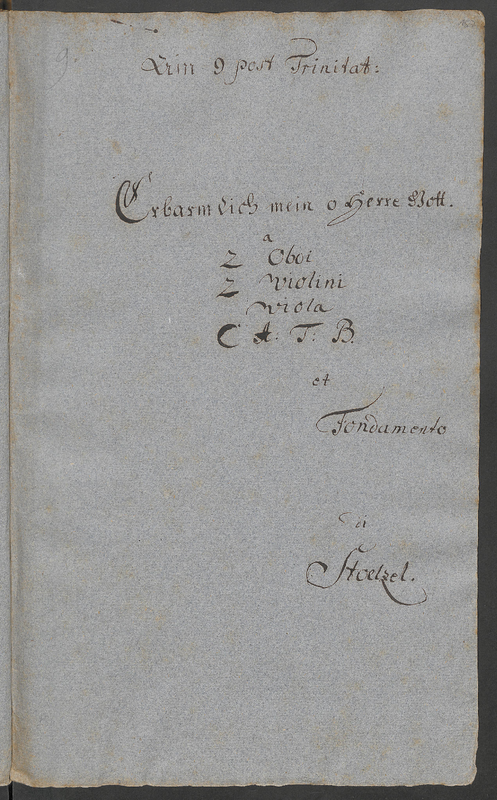 9.
9 post Trinitat:
Erbarm dich mein o Herre Gott.
a
2 Oboi
2 Violini
Viola
C A: T: B.
et
Fondamento
di
Stoelzel.